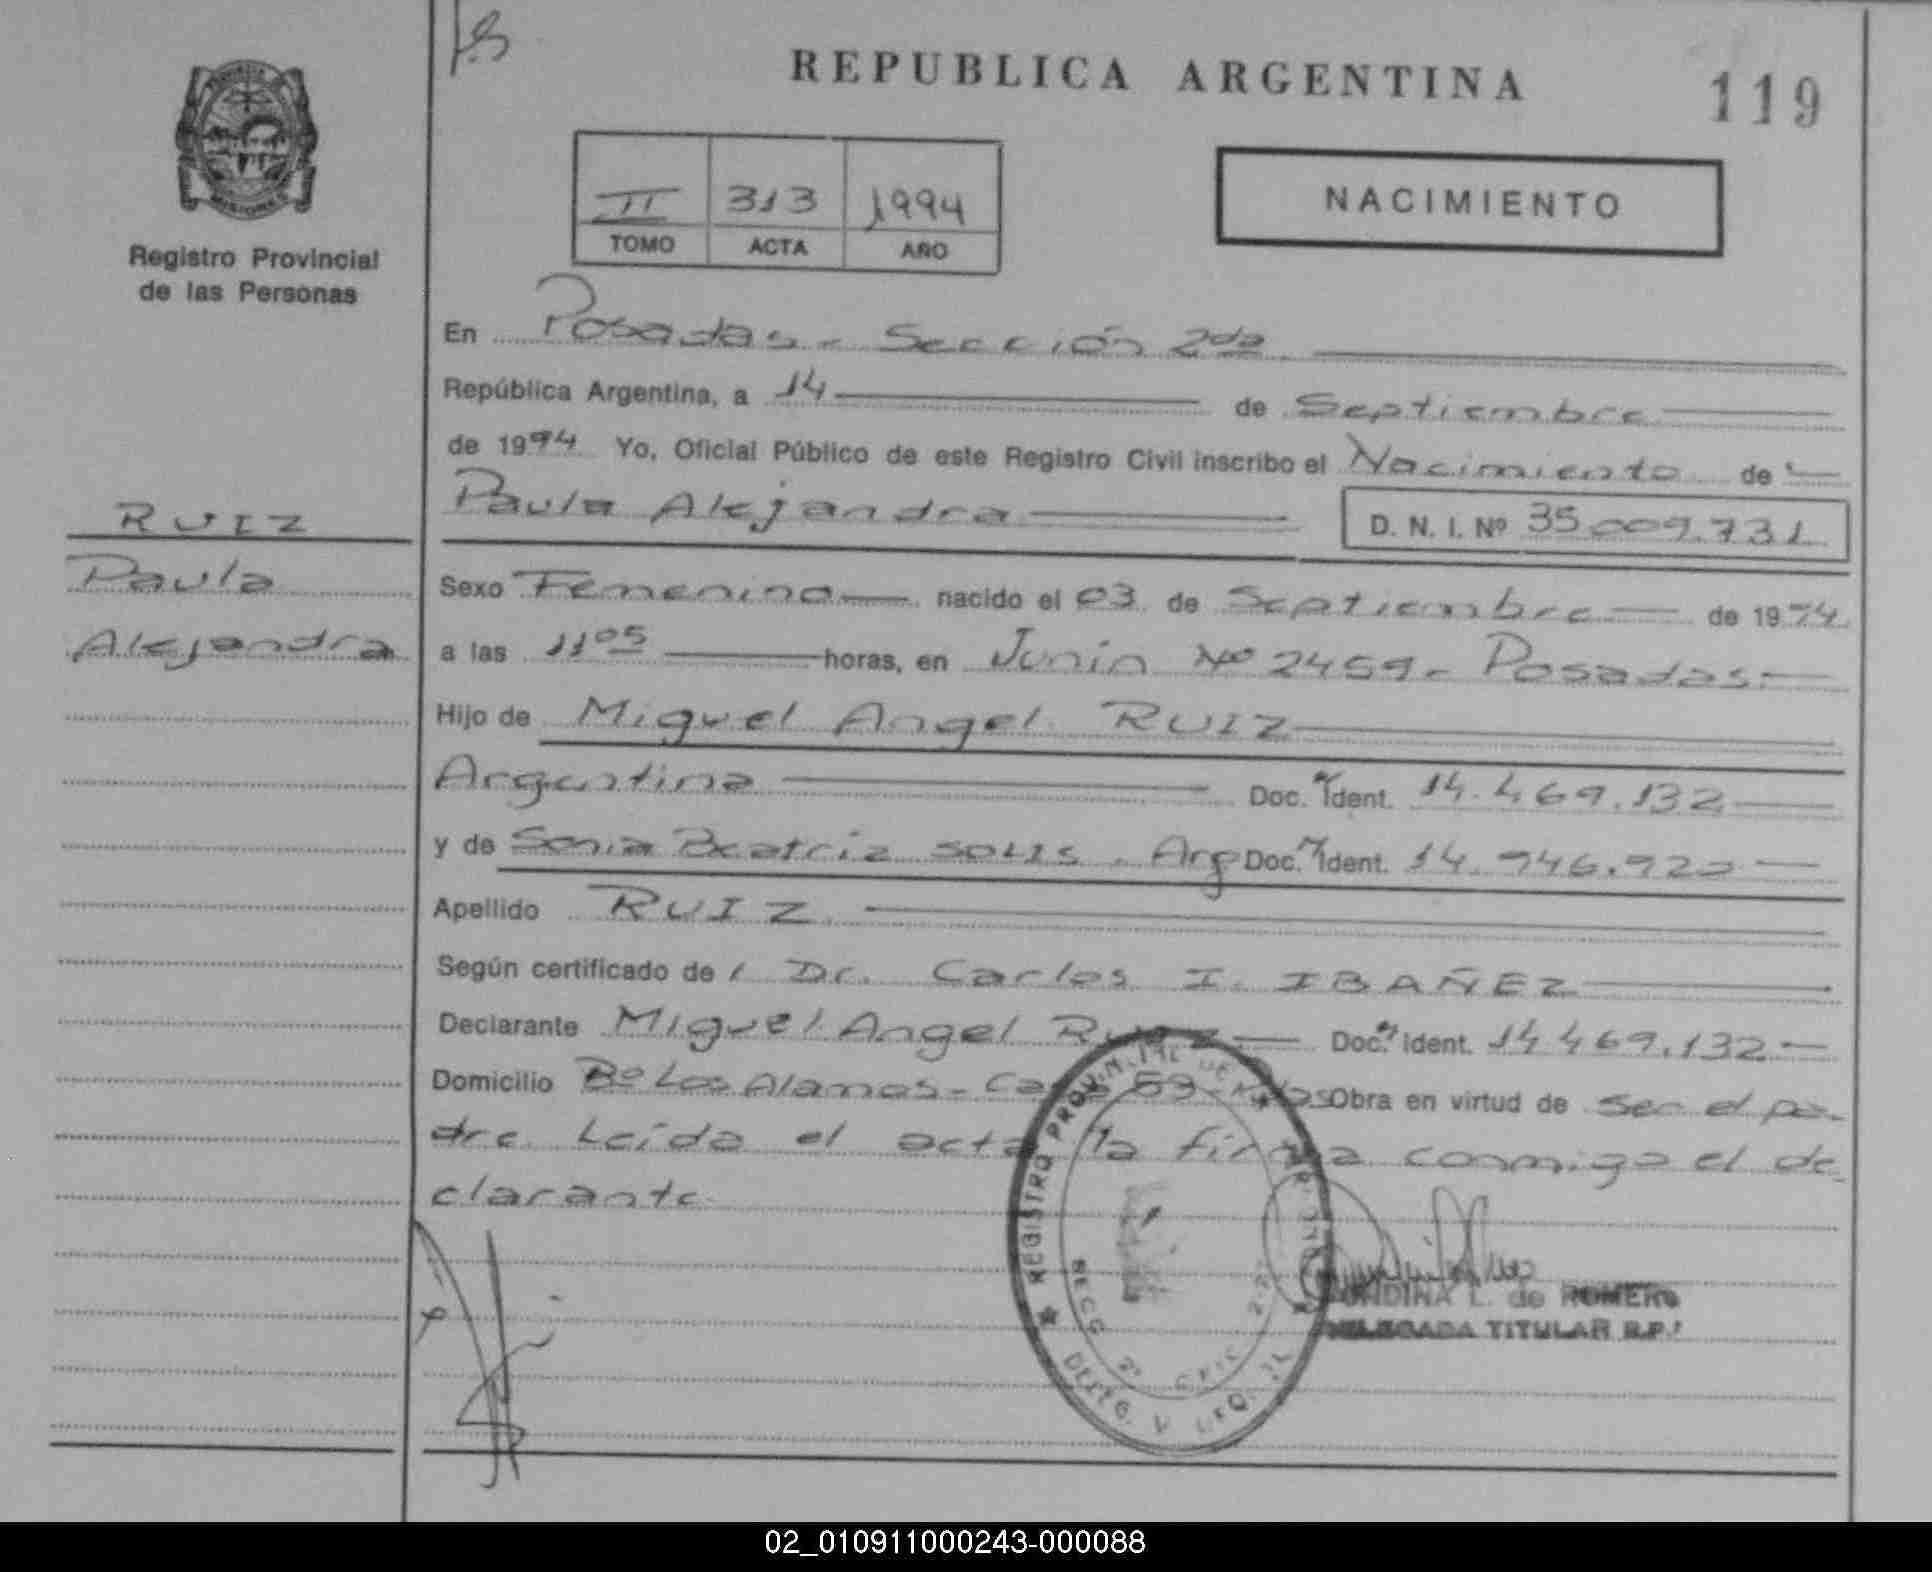 REPUBLICA ARGENTINA
119
MISIONES
Registro Provincial
de las Personas
II 313 1994
TOMO ACTA AÑO
NACIMIENTO
En Posadas - Sección 2da.
República Argentina, a 14 de Septiembre
de 1994 Yo, Oficial Público de este Registro Civil inscribo el Nacimiento de
RUIZ
Paula Alejandra D. N. I. Nº 35.009.731
Paula
Alejandra
Sexo Femenino nacido el 03 de Septiembre de 1994
a las 11 05 horas, en Junín Nº 2459 - Posadas.
Hijo de Miguel Angel RUIZ
Argentina Doc. Ident. 14.469.132
y de Sonia Beatriz SOLIS. Arg Doc. Ident. 14.946.922
Apellido RUIZ
Según certificado de Dr. Carlos I. IBAÑEZ
Declarante Miguel Angel Ruiz Doc. Ident. 14.469.132
Domicilio Bº Los Alamos - Casa 53 - Obra en virtud de ser el pa-
dre. Leída el acta la firma conmigo el de-
clarante.
REGISTRO PROVINCIAL DE
SECC 2º
L. de ROMERO
DELEGADA TITULAR R.P.
02_010911000243-000088